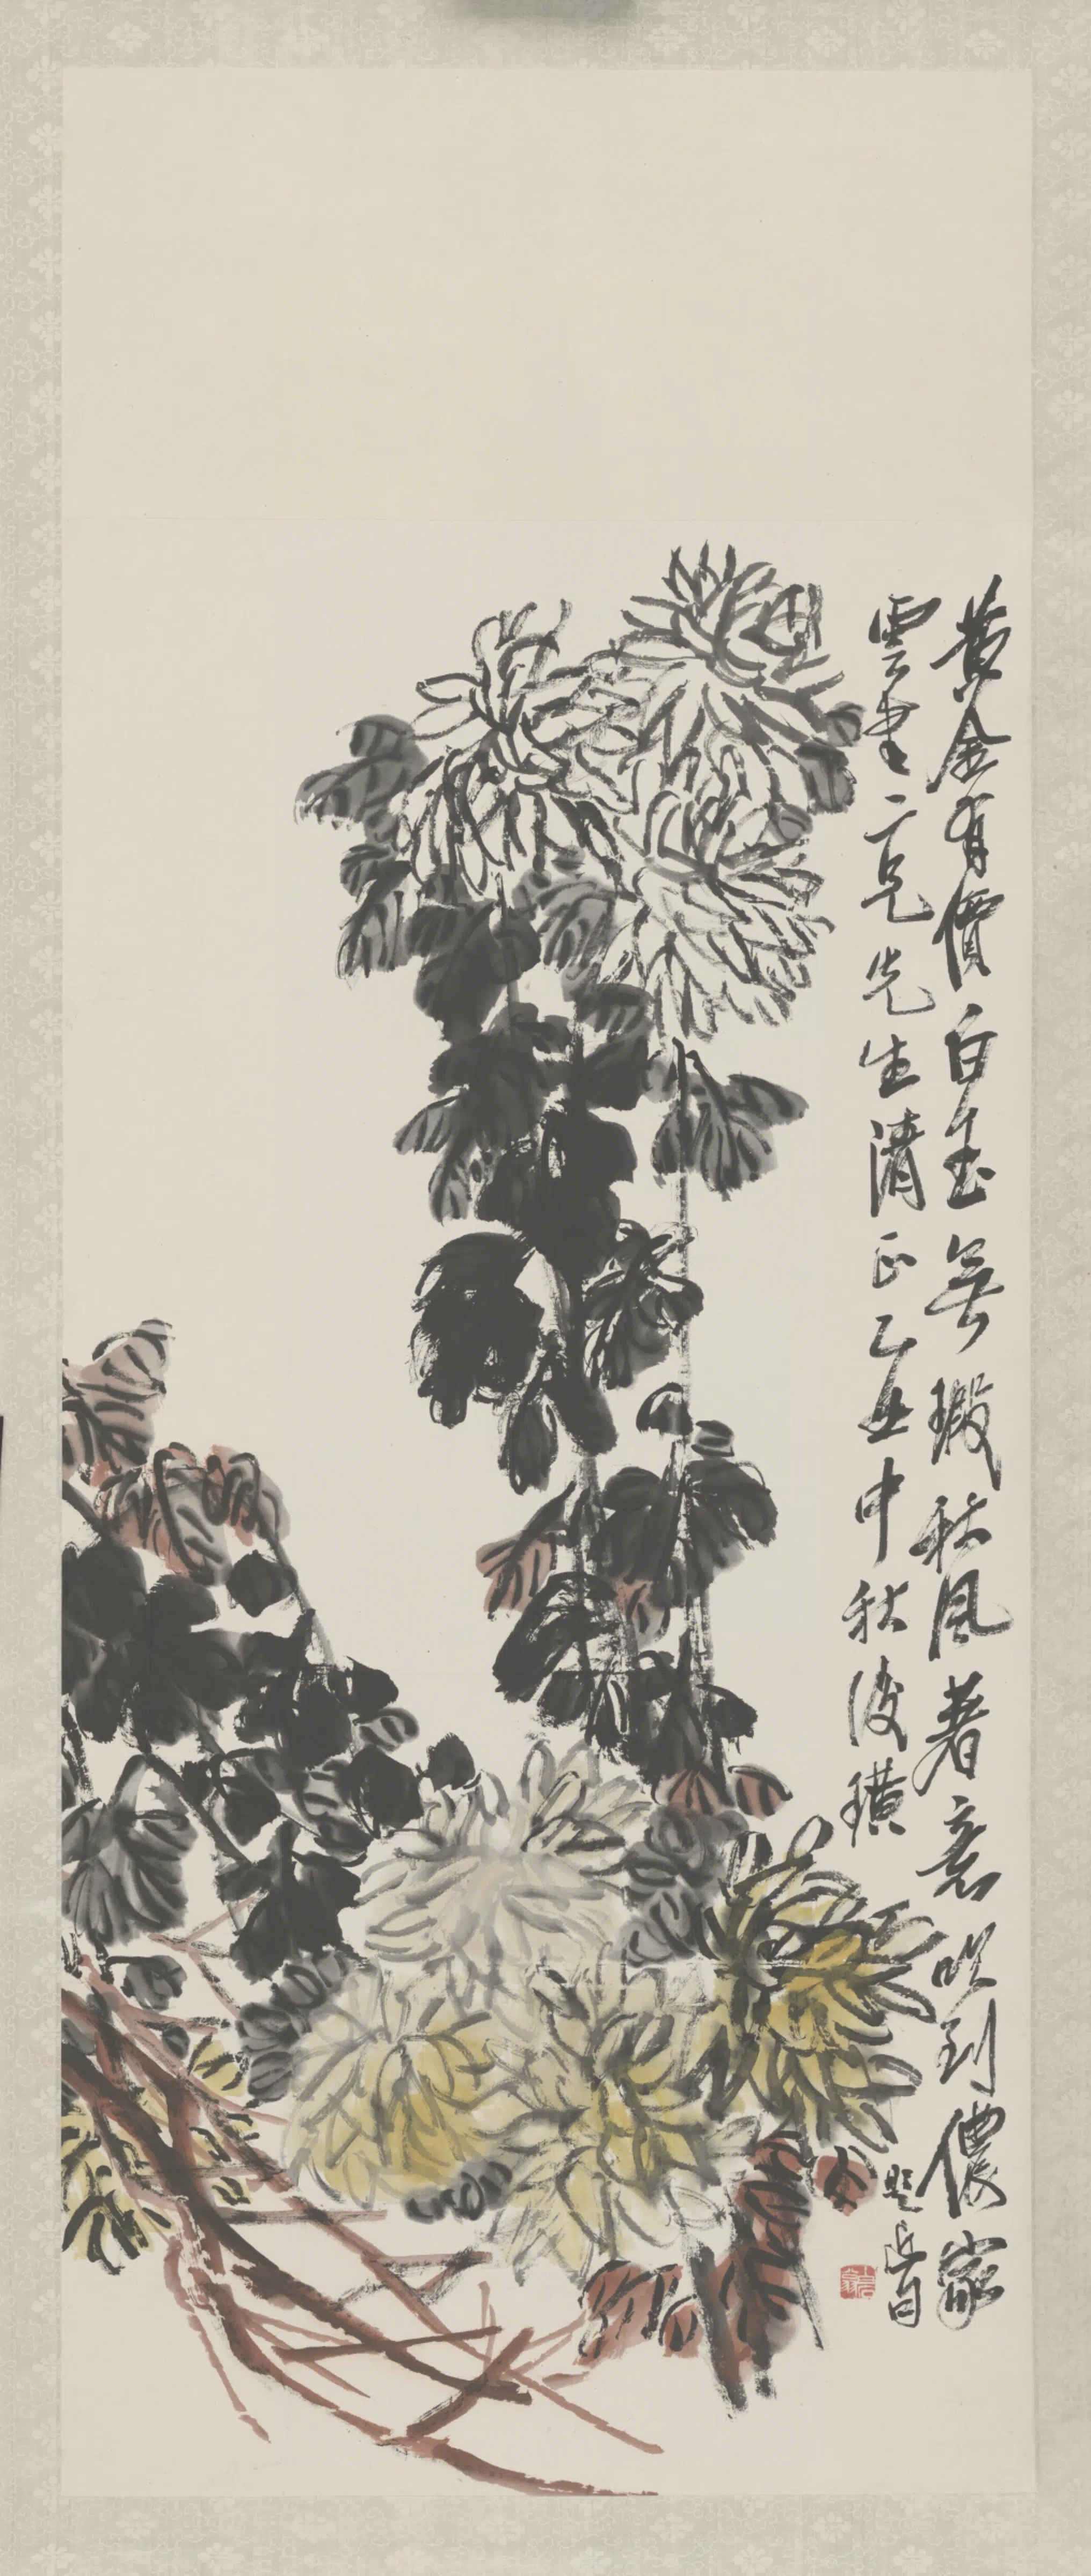 黃金有價白玉無瑕秋風著意吹到儂家
雲 二兄先生清正乙丑中秋後璜
題 昔